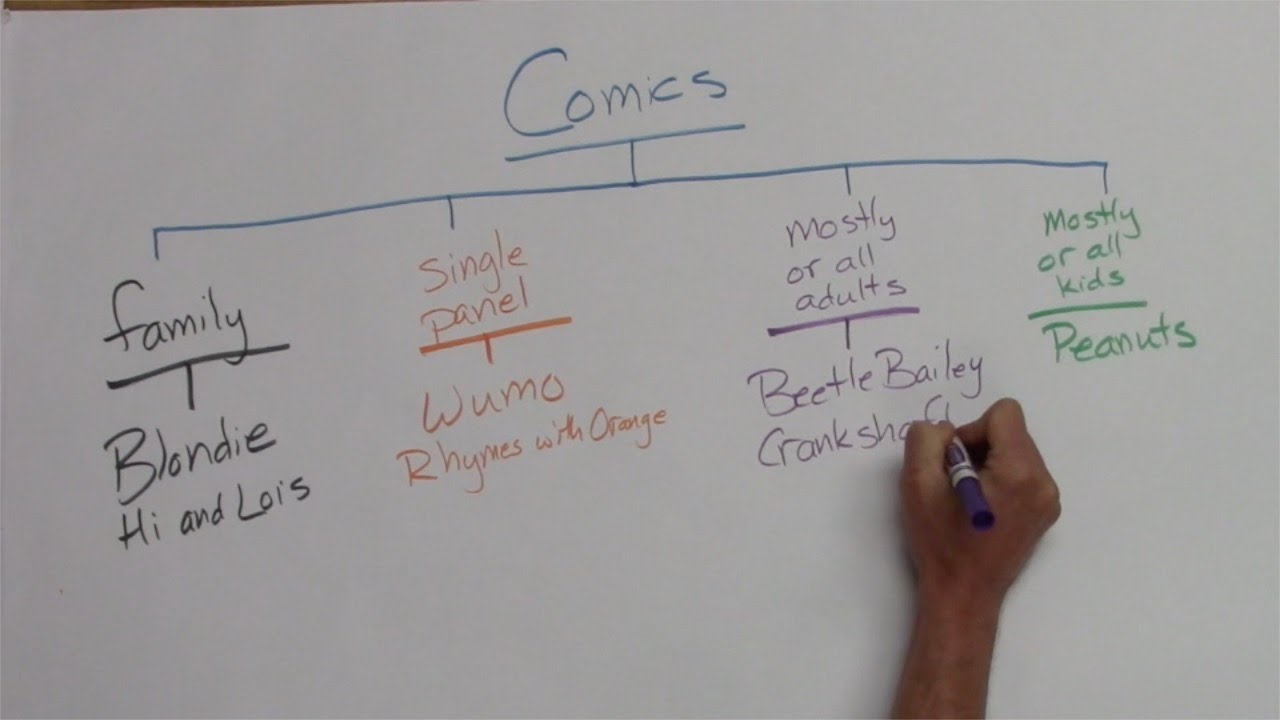 Comics
family
Blondie
Hi and Lois
Single
panel
Wumo
Rhymes with Orange
Mostly
or all
adults
Beetle Bailey
Cranksha
Mostly
or all
kids
Peanuts